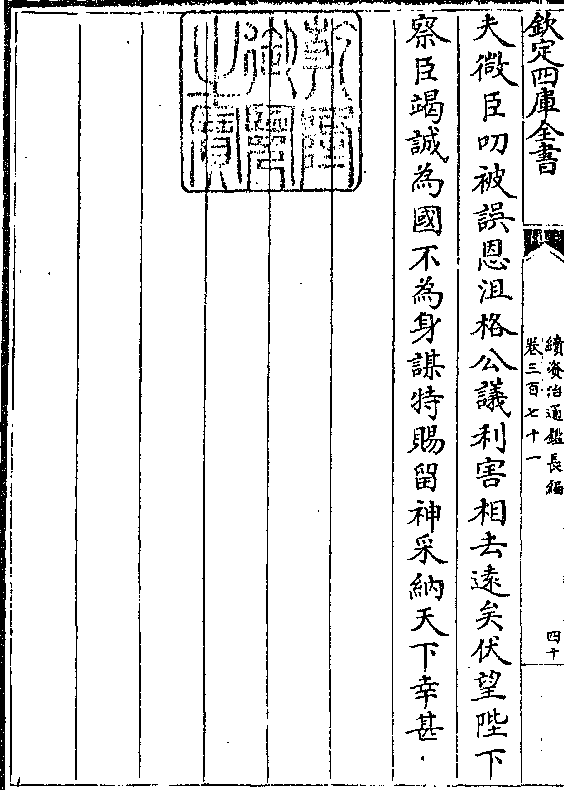 欽定四庫全書
續資治通鑑長編
卷三百七十一
四十
夫微臣叨被誤恩沮格公議利害相去遠矣伏望陛下
察臣竭誠為國不為身謀特賜留神采納天下幸甚
乾隆御覽之寶